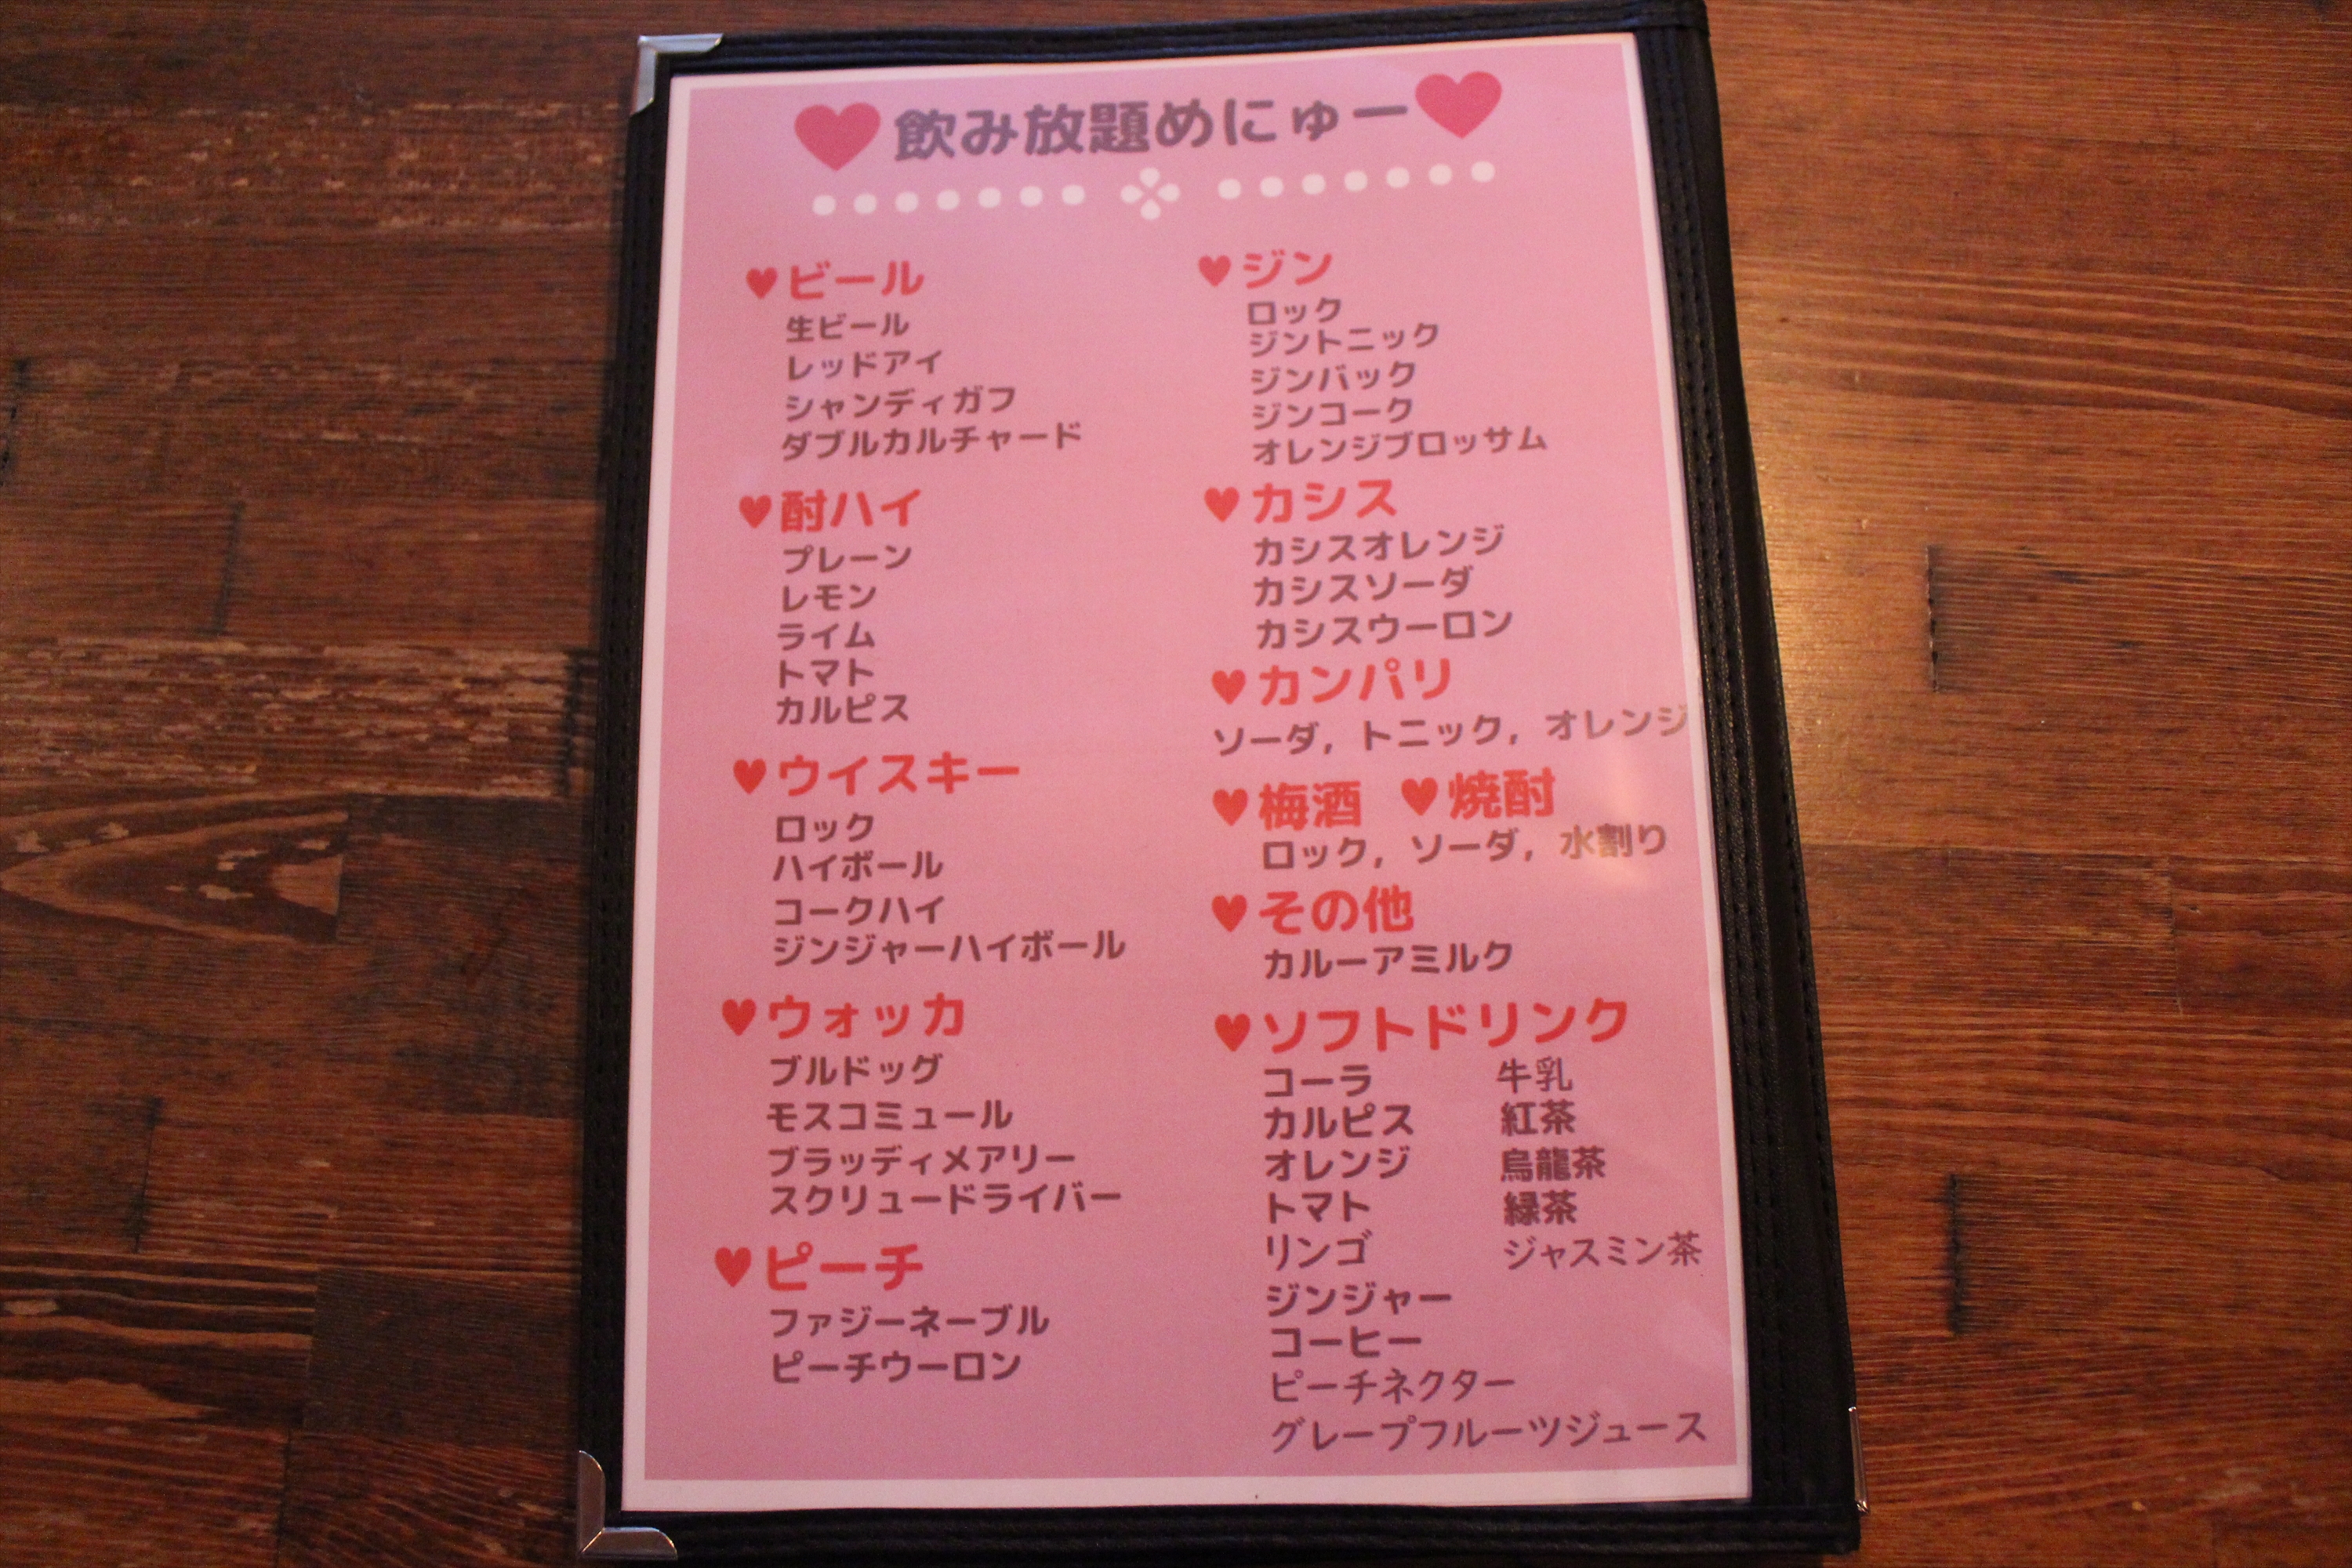 飲み放題めにゅー
ビール
生ビール
レッドアイ
シャンディガフ
ダブルカルチャード
酎ハイ
プレーン
レモン
ライム
トマト
カルピス
ウイスキー
ロック
ハイボール
コークハイ
ジンジャーハイボール
ウォッカ
ブルドッグ
モスコミュール
ブラッディメアリー
スクリュードライバー
ピーチ
ファジーネーブル
ピーチウーロン
ジン
ロック
ジントニック
ジンバック
ジンコーク
オレンジブロッサム
カシス
カシスオレンジ
カシスソーダ
カシスウーロン
カンパリ
ソーダ, トニック, オレンジ
梅酒 焼酎
ロック, ソーダ, 水割り
その他
カルーアミルク
ソフトドリンク
コーラ 牛乳
カルピス 紅茶
オレンジ 烏龍茶
トマト 緑茶
リンゴ ジャスミン茶
ジンジャー
コーヒー
ピーチネクター
グレープフルーツジュース